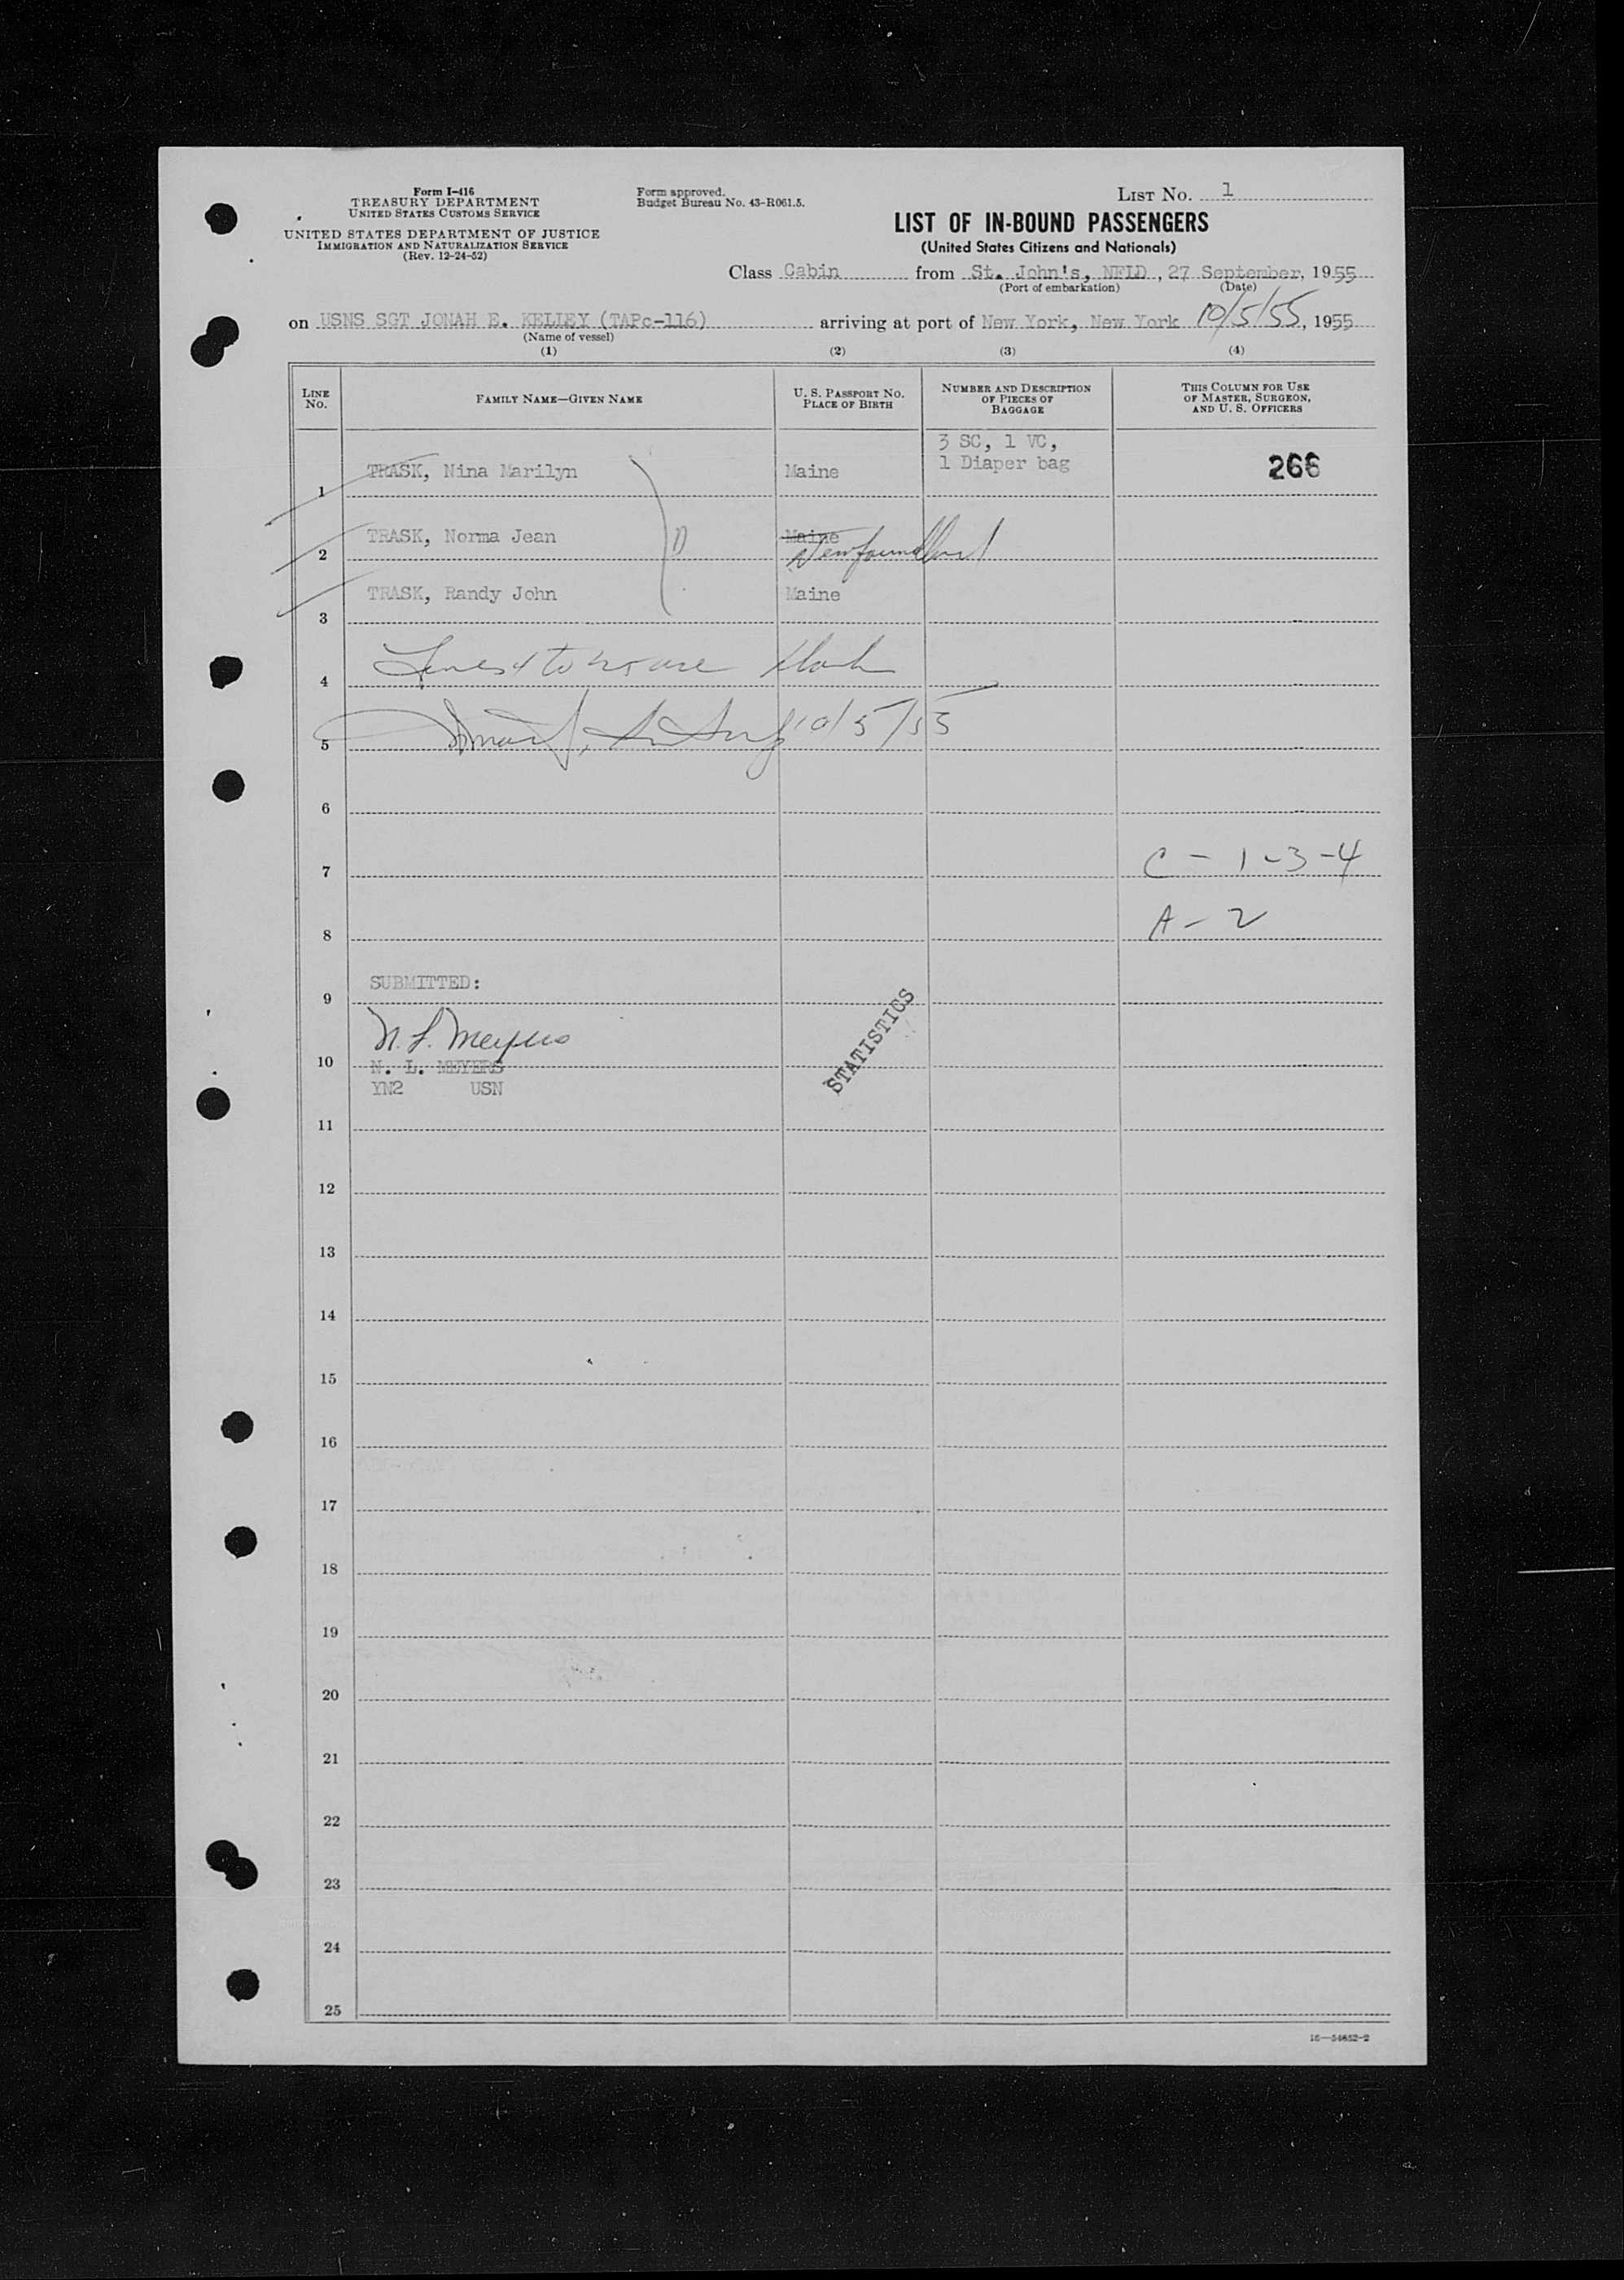 Form I-416
TREASURY DEPARTMENT
UNITED STATES CUSTOMS SERVICE
UNITED STATES DEPARTMENT OF JUSTICE
IMMIGRATION AND NATURALIZATION SERVICE
(Rev. 12-24-52)
Form approved.
Budget Bureau No. 43-R061.5.
LIST NO. 1
LIST OF IN-BOUND PASSENGERS
(United States Citizens and Nationals)
Class Cabin from St. John's, NFLD, 27 September, 1955
(Port of embarkation) (Date)
on USNS SGT JONAH E. KELLEY (TAPc-116) arriving at port of New York, New York 10/5/55, 1955
(Name of vessel)
(1) (2) (3) (4)
LINE NO. FAMILY NAME—GIVEN NAME U. S. PASSPORT NO. PLACE OF BIRTH NUMBER AND DESCRIPTION OF PIECES OF BAGGAGE THIS COLUMN FOR USE OF MASTER, SURGEON, AND U. S. OFFICERS
3 SC, 1 VC,
1 TRASK, Nina Marilyn Maine 1 Diaper bag 266
2 TRASK, Norma Jean Maine Newfoundland
3 TRASK, Randy John Maine
4
5 10/5/55
6
7 C - 1-3-4
8 A - 2
9 SUBMITTED:
N. L. Meyers
10 N. L. MEYERS
YN2 USN
STATISTICS
11
12
13
14
15
16
17
18
19
20
21
22
23
24
25
16—54652-2